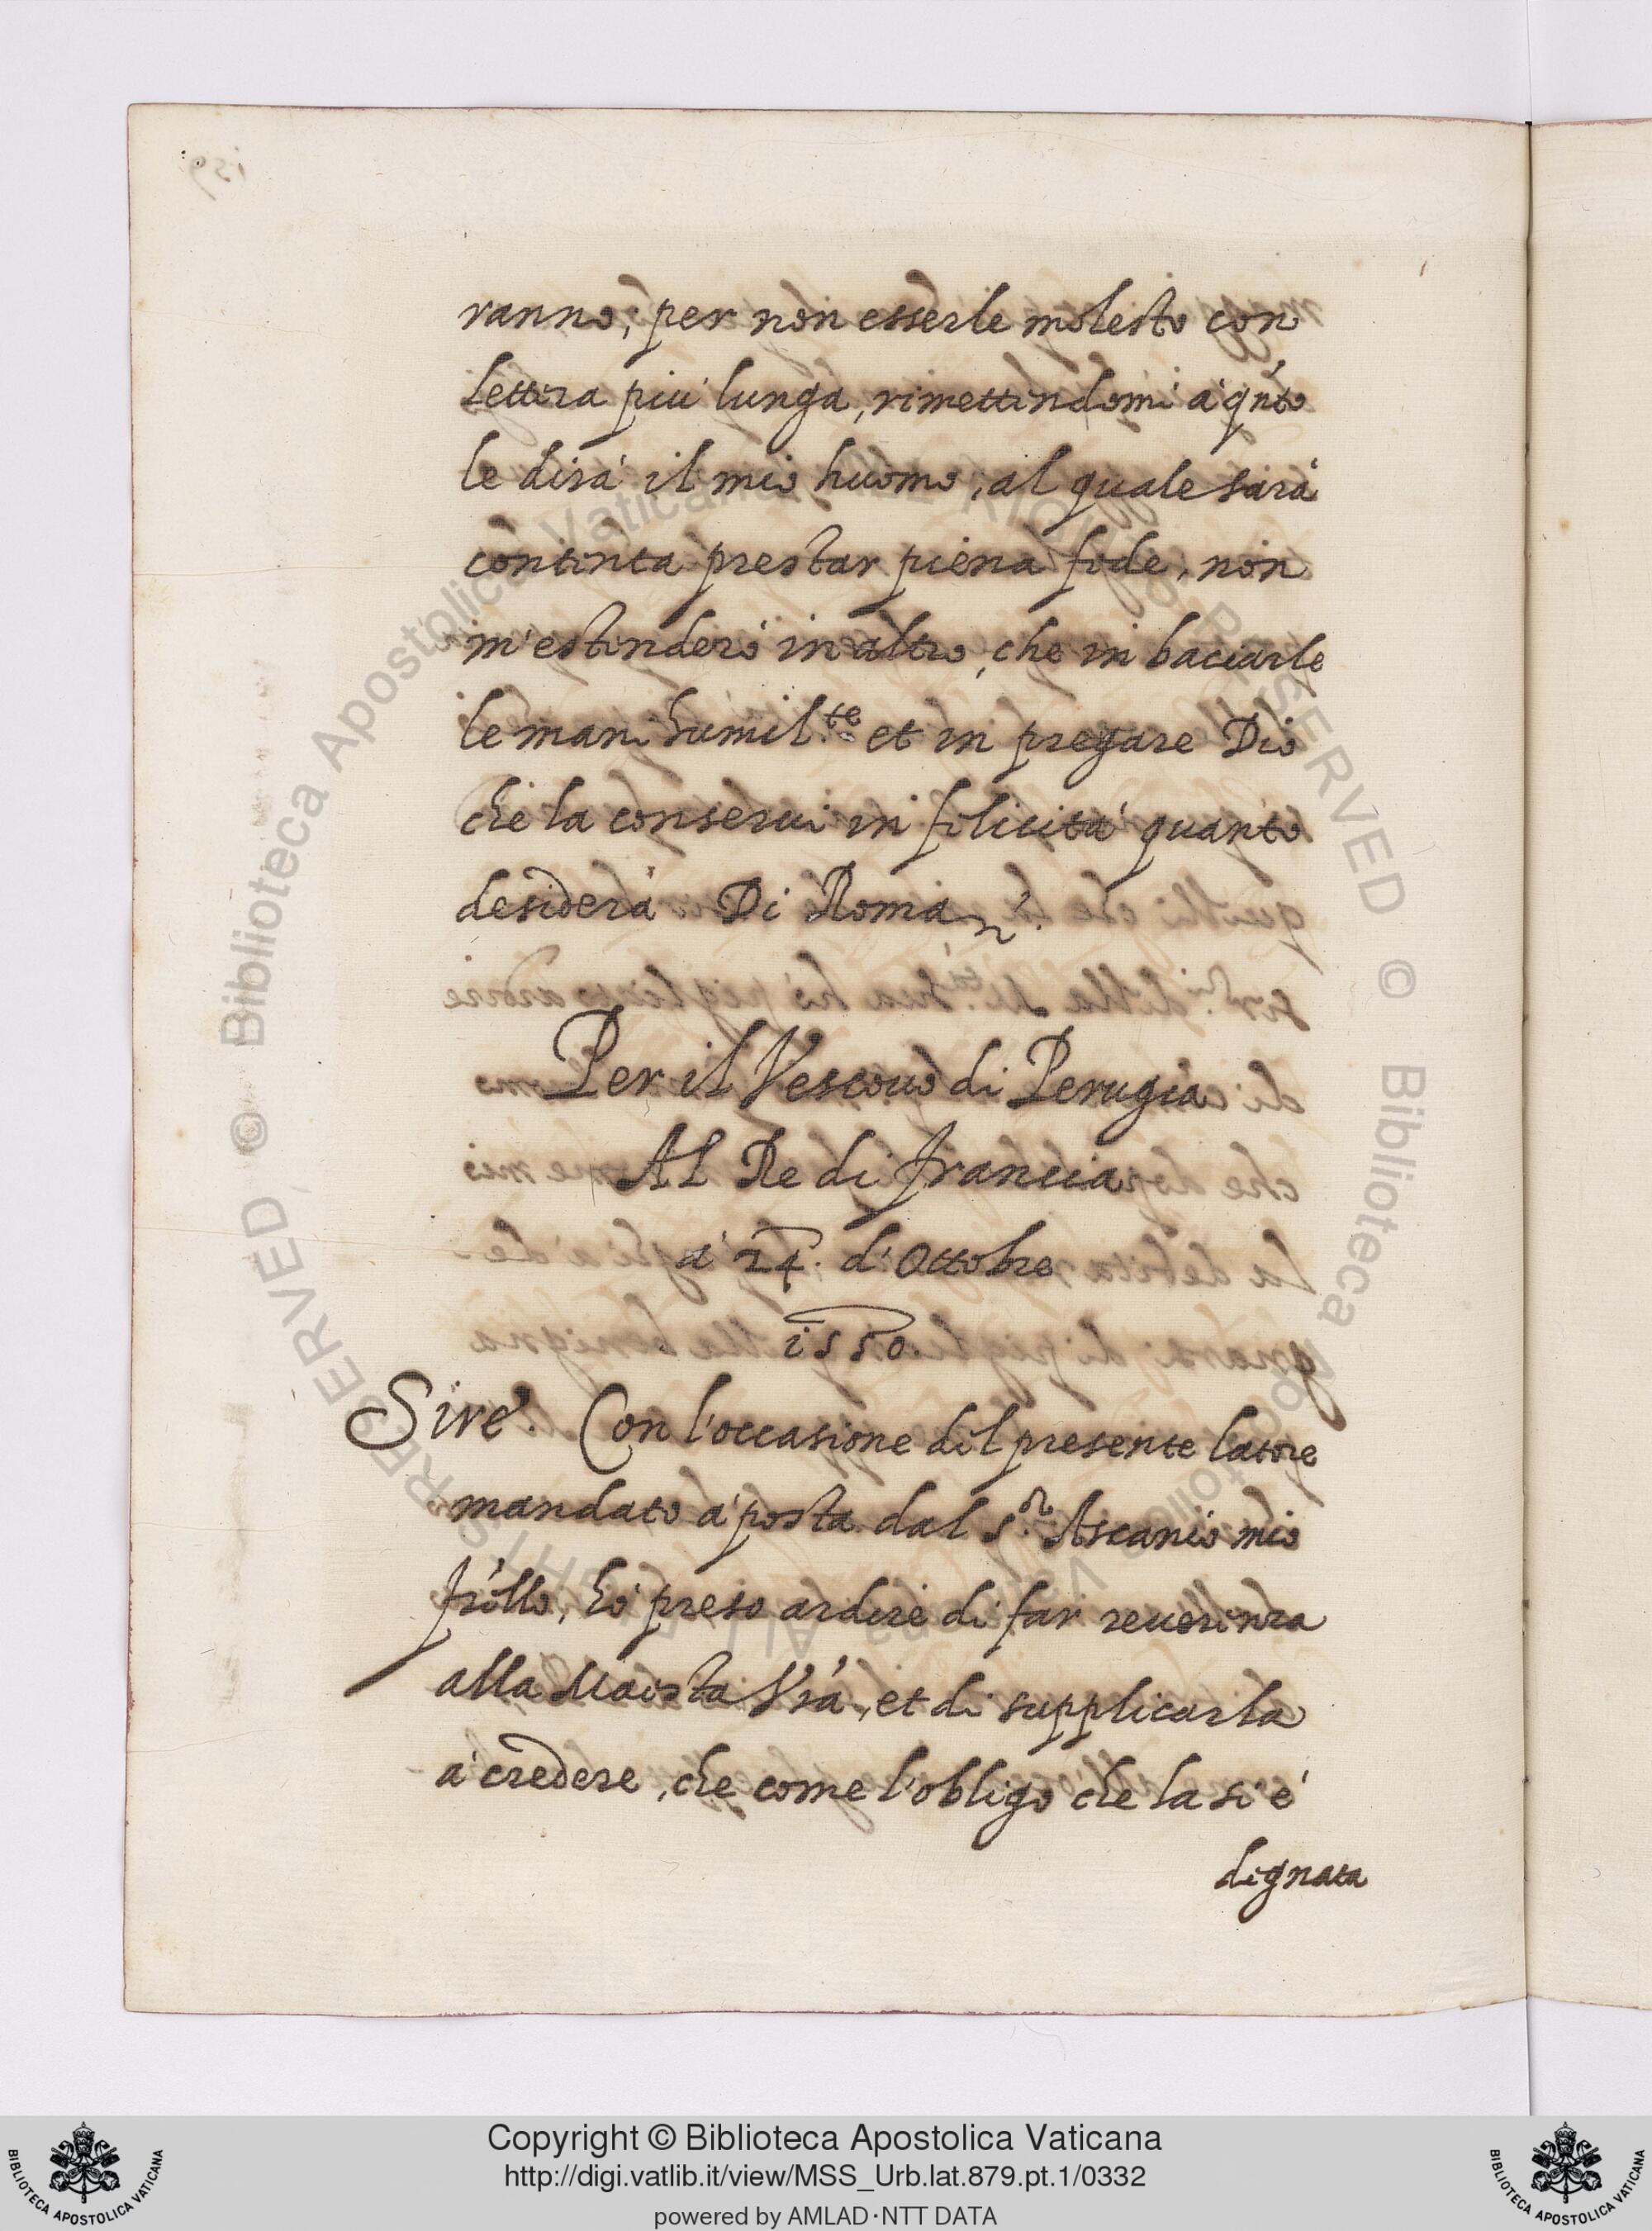 ranno; per non esserle molesto con
lettera più lunga, rimettendomi à qnto
le dirà il mio huomo, al quale sarà
contenta prestar piena fede, non
m'estenderò in altro, che in baciarle
le mani humil.te et in pregare Dio
che la conserui in felicità quanto
desidera Di Roma
Per il Vescouo di Perugia
Al Re di Francia
à 24. d'Ottobre
1550.
Sire. Con l'occasione del presente latore
mandato à posta dal S.r Ascanio mio
frello, hò preso ardire di far reuerenza
alla Maestà Vrà, et di supplicarla
à credere, che come l'obligo che la si è
dignata
Copyright © Biblioteca Apostolica Vaticana
http://digi.vatlib.it/view/MSS_Urb.lat.879.pt.1/0332
powered by AMLAD·NTT DATA